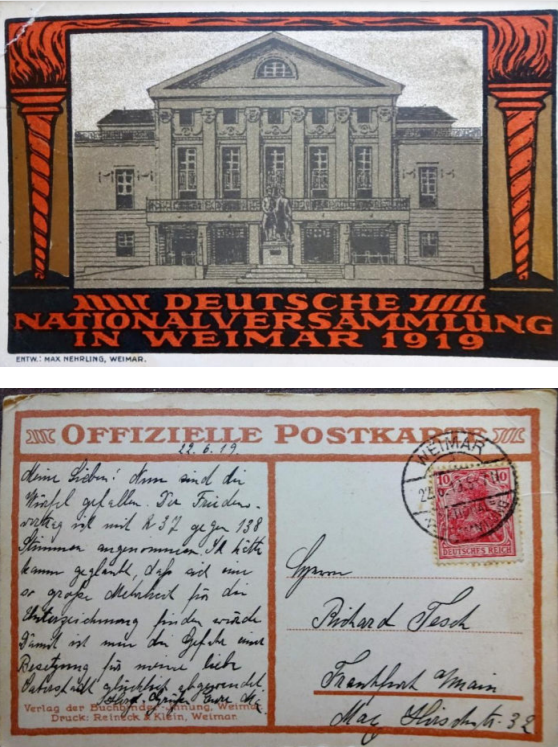 DEUTSCHE
NATIONALVERSAMMLUNG
IN WEIMAR 1919
ENTW.: MAX NEHRLING, WEIMAR.
OFFIZIELLE POSTKARTE
22.6.19.
Meine Lieben! Nun sind die
Würfel gefallen. Der Friedens-
vertrag mit 237 gegen 138
Stimmen angenommen. Ich hätte
kaum geglaubt, daß sich eine
so große Mehrheit für die
Unterzeichnung finden würde
Damit ist nun die Gefahr einer
Besetzung für meine liebe
Vaterstadt glücklich abgewendet
Verlag der Buchbinder-Innung, Weimar.
Druck: Reineck & Klein, Weimar.
WEIMAR
10 10
DEUTSCHES REICH
Herrn
Richard Tesch
Frankfurt a/Main
32